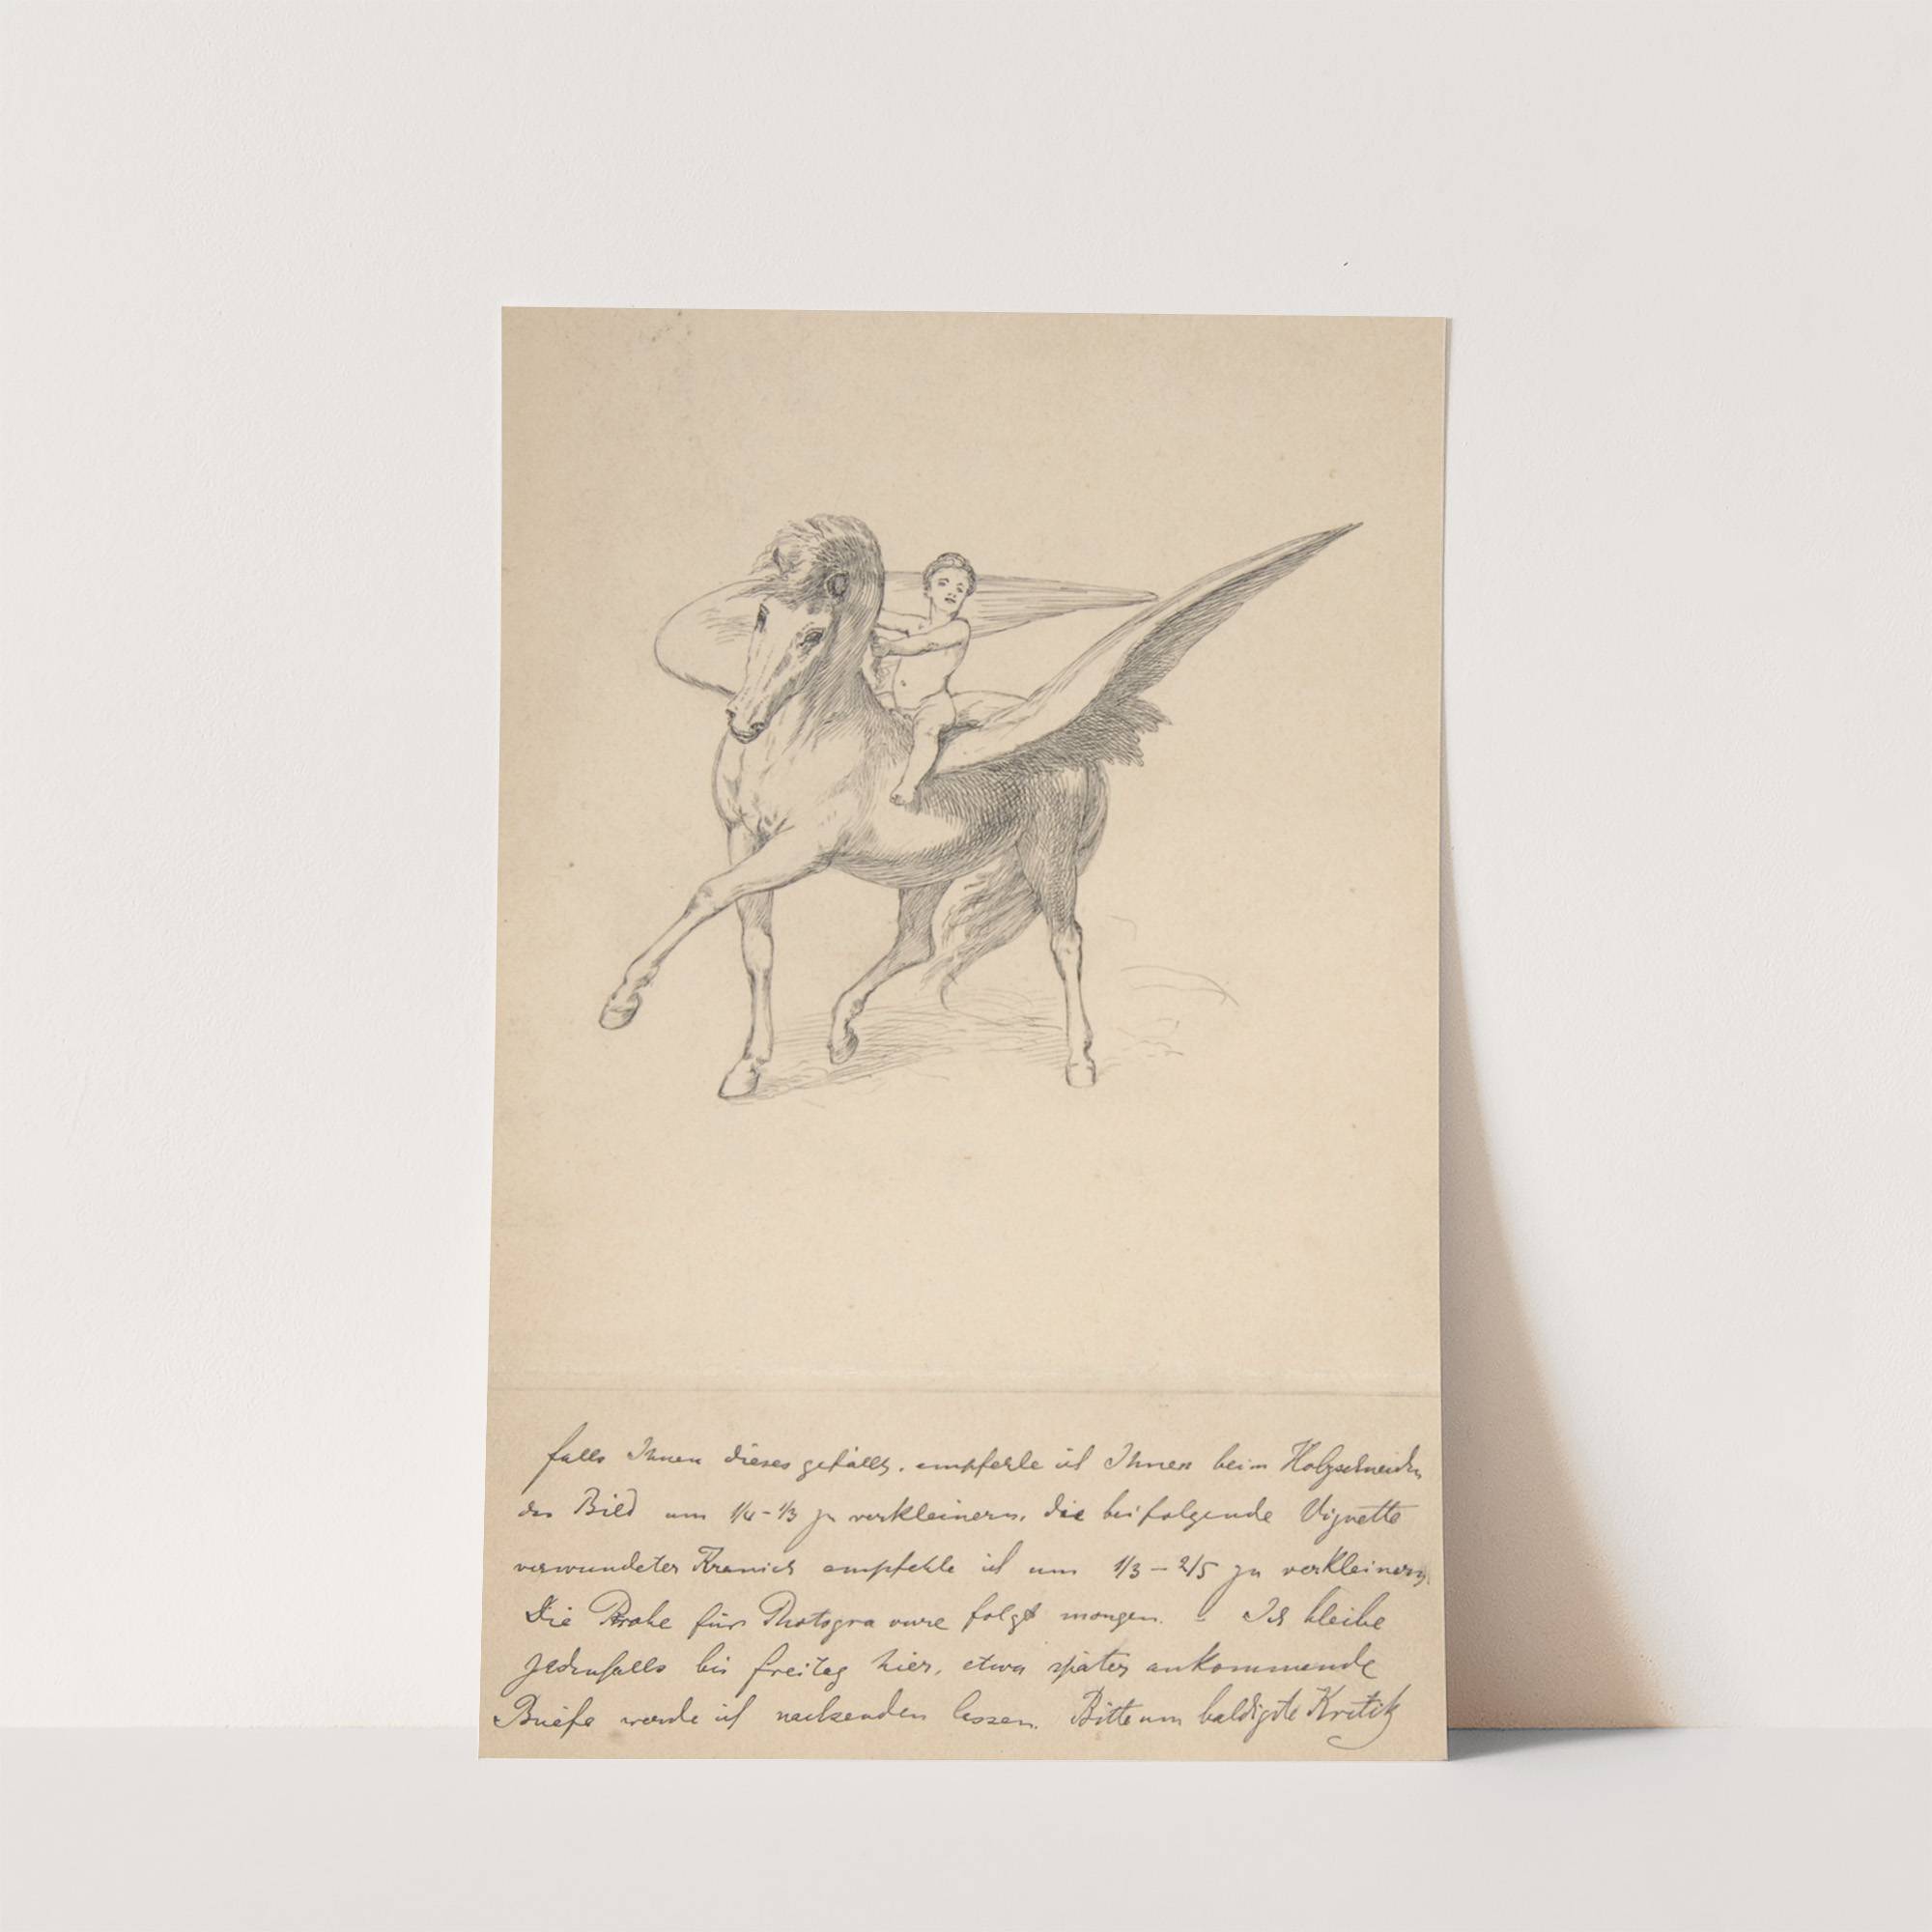 falls Ihnen dieses gefällt, empfehle ich Ihnen beim Holzschneiden
das Bild um 1/4 - 1/3 zu verkleinern, die beifolgende Vignette
verwundeter Kranich empfehle ich um 1/3 - 2/5 zu verkleinern,
Die Probe für Photogravure folgt morgen. - Ich bleibe
jedenfalls bis freitag hier, etwa später ankommende
Briefe werde ich nachsenden lassen. Bitte um baldigste Kritik